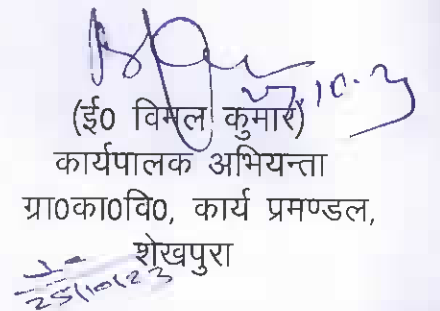 (ई0 विमल कुमार)
कार्यपालक अभियन्ता
ग्रा0का0वि0, कार्य प्रमण्डल,
शेखपुरा
25/10/23